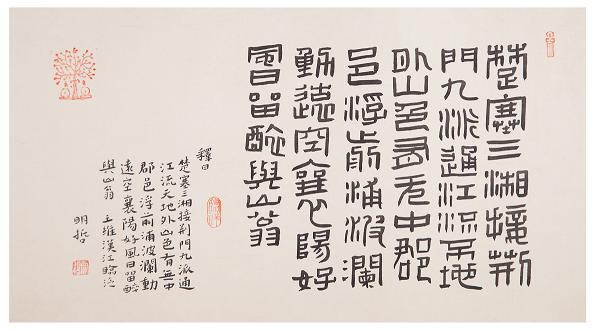 楚塞三湘接荆
門九派通江流天地
外山色有无中郡
邑浮前浦波瀾
動遠空襄陽好
風日留醉與山翁
釋曰
楚塞三湘接荆門九派通
江流天地外山色有無中
郡邑浮前浦波瀾動
遠空襄陽好風日留醉
與山翁 王維漢江臨泛
明哲